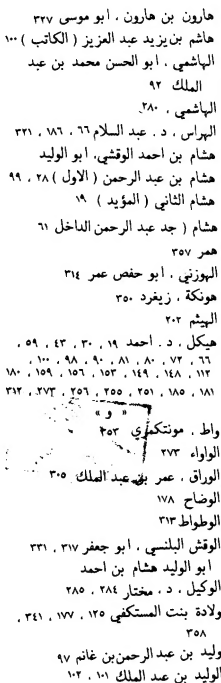 هارون بن هارون ، ابو موسى ٣٢٧
هاشم بن يزيد عبد العزيز ( الكاتب ) ١٠٠
الهاشمي ، ابو الحسن محمد بن عبد
الملك ٩٢
الهاشمي ، ٢٨٠
الهراس ، د . عبد السلام ٦٦ ، ١٨٦ ، ٣٢١
هشام بن احمد الوقشي، ابو الوليد
هشام بن عبد الرحمن ( الاول ) ٢٨ ، ٩٩
هشام الثاني ( المؤيد ) ١٩
هشام ( جد عبد الرحمن الداخل ٦١
همر ٣٥٧
الهوزني ، ابو حفص عمر ٣١٤
هونكة ، زيغرد ٣٥٠
الهيثم ٢٠٢
هيكل ، د . احمد ١٩ ، ٣٠ ، ٤٣ ، ٥٩ ،
٦٦ ، ٧٢ ، ٨٠ ، ٨١ ، ٩٠ ، ٩٨ ، ١٠٠ ،
١١٢ ، ١٤٨ ، ١٤٩ ، ١٥٣ ، ١٥٦ ، ١٥٩ ، ١٨٠
١٨١ ، ١٨٥ ، ٢٥١ ، ٢٥٥ ، ٢٥٦ ، ٢٧٣ ، ٣١٢
« و »
واط ، مونتكمري ٢٥٣
الواواء ٢٧٣
الوراق ، عمر بن عبد الملك ٣٠٥
الوضاح ١٧٨
الوطواط ٣١٣
الوقش البلنسي ، ابو جعفر ٣١٧ ، ٣٣١
ابو الوليد هشام بن احمد
الوكيل ، د . مختار ٢٨٤ ، ٢٨٥
ولادة بنت المستكفي ١٢٥ ، ١٧٧ ، ٣٤١ ،
٣٥٨
وليد بن عبد الرحمن بن غانم ٩٧
الوليد بن عبد الملك ١٠١ ، ١٠٢